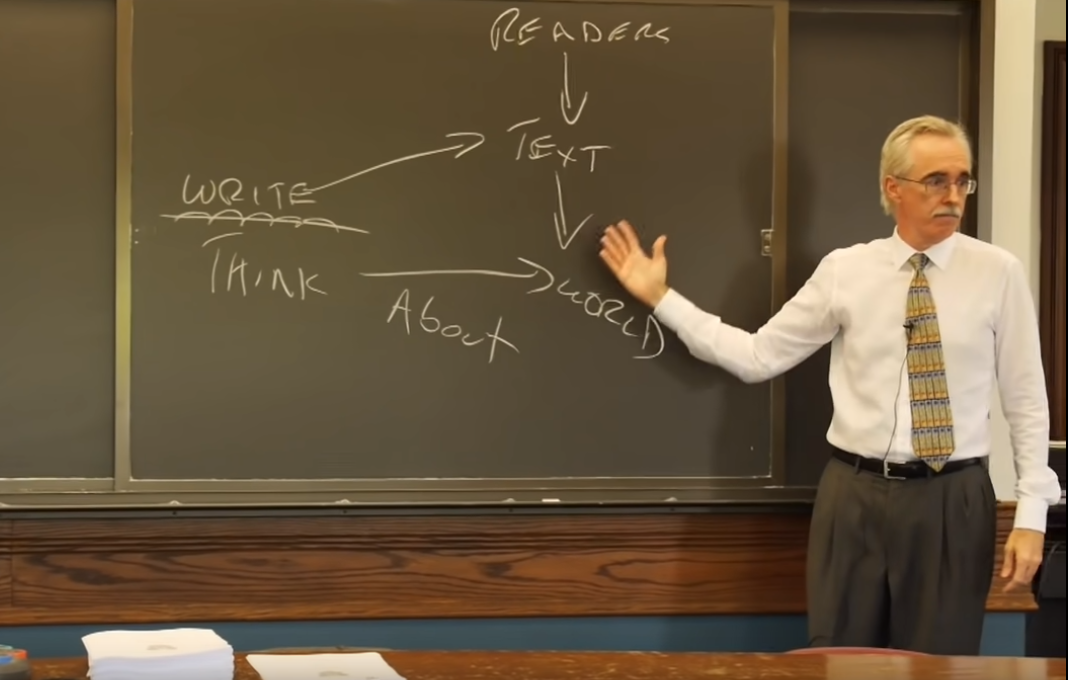 READERS
TEXT
WRITE
THINK
ABOUT
WORLD